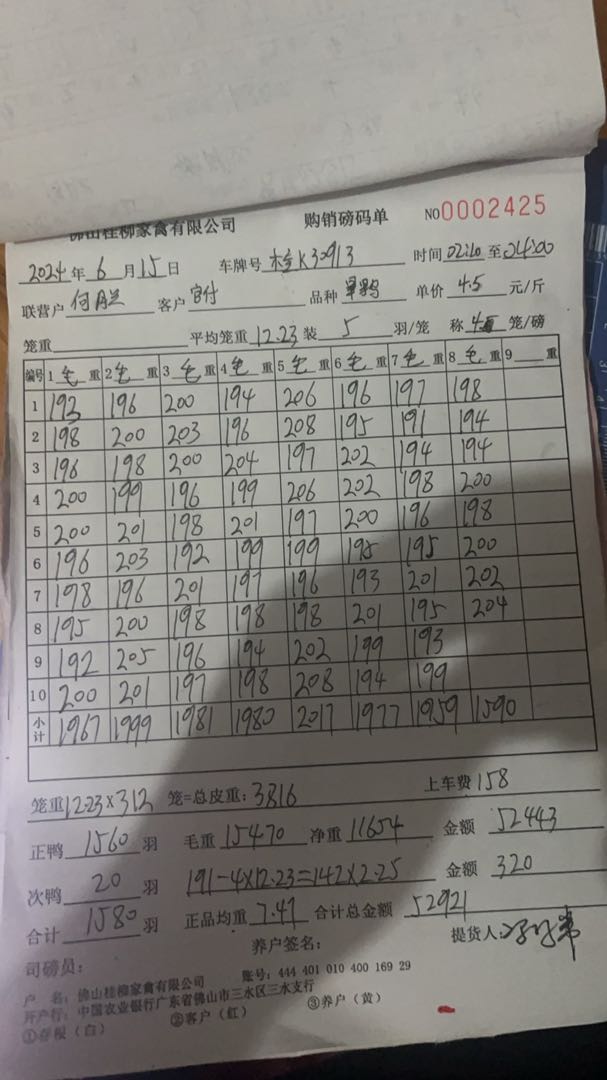 佛山桂柳家禽有限公司 购销磅码单 NO0002425
2024年6月15日 车牌号 K30913 时间02:10至04:00
联营户 何 客户 官付 品种 单价 4.5 元/斤
笼重 平均笼重12.23装 5 羽/笼 称 4 笼/磅
编号 1毛重 2毛重 3毛重 4毛重 5毛重 6毛重 7毛重 8毛重 9 重
1 193 196 200 194 206 196 197 198
2 198 200 203 196 208 195 191 194
3 196 198 200 204 197 202 194 194
4 200 199 196 199 206 202 198 200
5 200 201 198 201 197 200 196 198
6 196 203 192 199 199 195 195 200
7 198 196 201 197 196 193 201 202
8 195 200 198 198 198 201 195 204
9 192 205 196 194 202 199 193
10 200 201 197 198 208 194 199
小计 1967 1999 1981 1980 2017 1977 1959 1590
笼重12.23×312 笼=总皮重:3816 上车费158
正鸭 1560 羽 毛重 15470 净重 11654 金额 52443
次鸭 20 羽 191-4×12.23=142×2.25 金额 320
合计 1580 羽 正品均重 7.47 合计总金额 52921
司磅员: 养户签名: 提货人:
户 名:佛山桂柳家禽有限公司 账号:444 401 010 400 169 29
开户行:中国农业银行广东省佛山市三水区三水支行
①存根(白) ②客户(红) ③养户(黄)